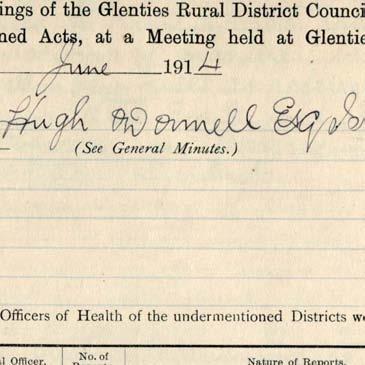 ings of the Glenties Rural District Counci
ned Acts, at a Meeting held at Glentie
June 1914
Hugh O'Donnell Esq
(See General Minutes.)
Officers of Health of the undermentioned Districts we
al Officer. No. of Nature of Reports.